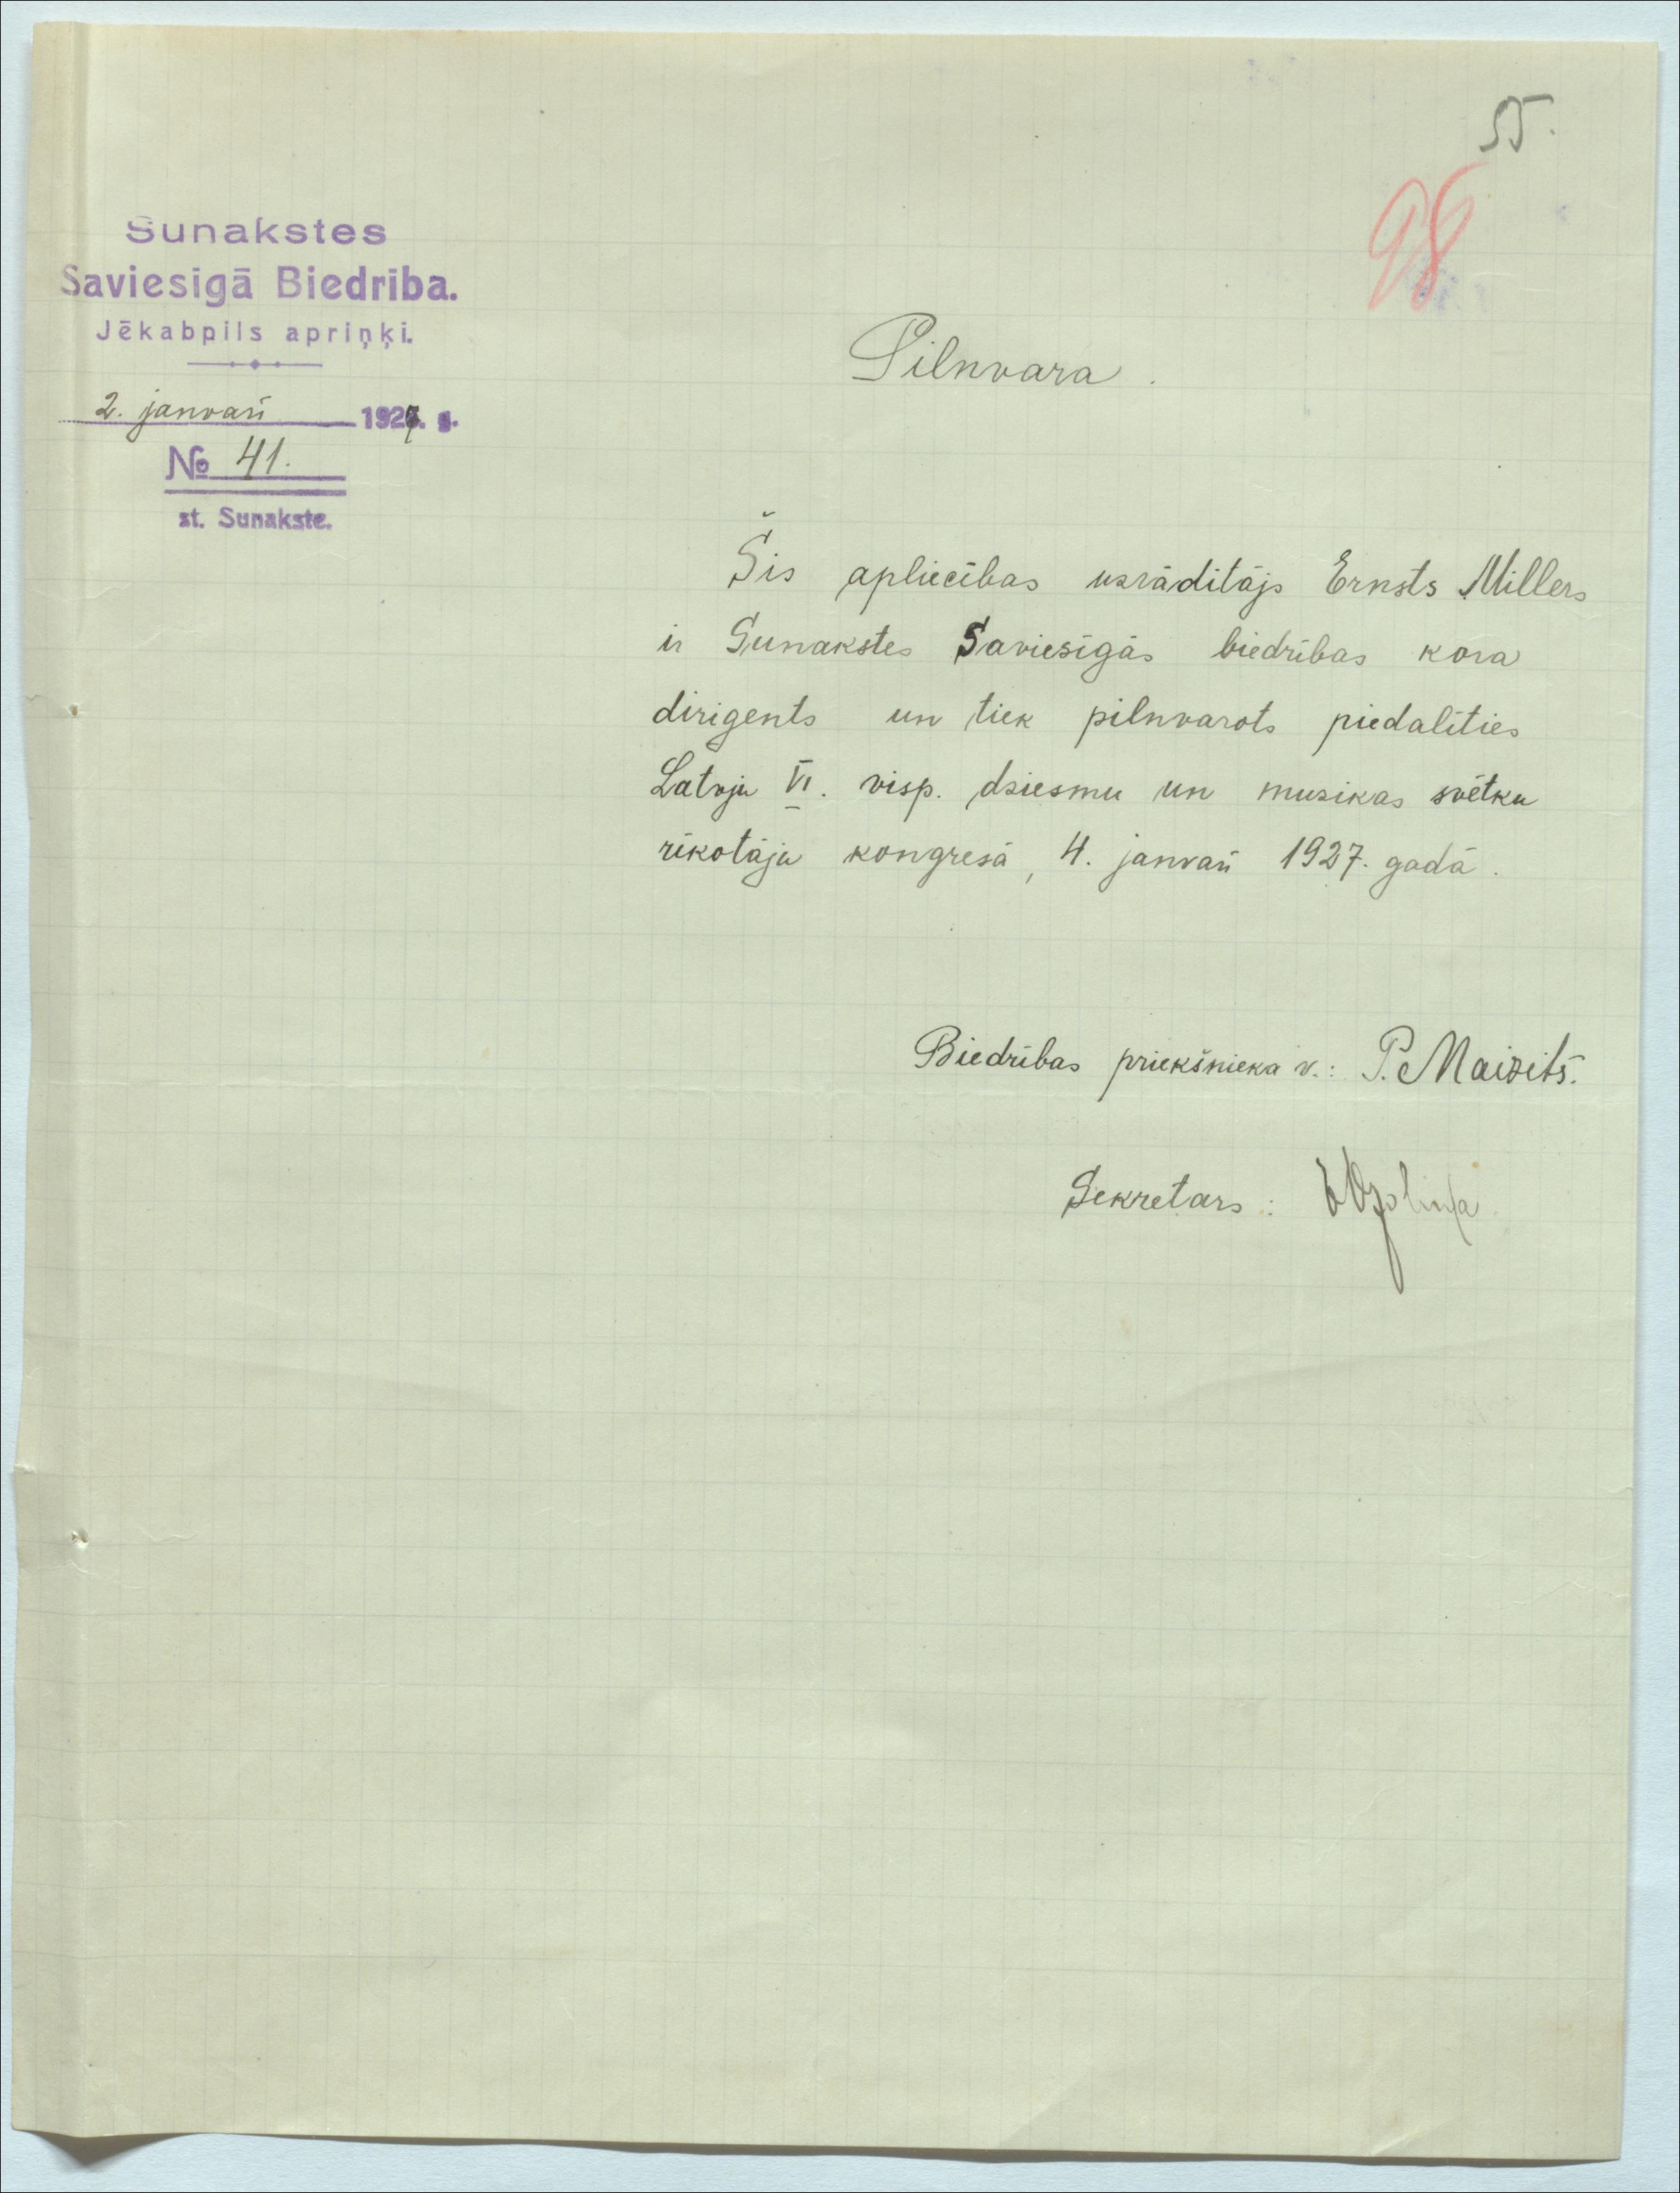 55.
98
Sunakstes
Saviesigā Biedrība.
Jēkabpils apriņķi.
2. janvarī 1927. g.
№ 41.
st. Sunakste.
Pilnvara.
Šis apliecības uzrādītājs Ernsts Millers
ir Sunakstes Saviesīgās biedrības kora
dirigents un tiek pilnvarots piedalīties
Latvju VI. visp. dziesmu un muzikas svētku
rīkotāju kongresā, 4. janvarī 1927. gadā.
Biedrības priekšnieka v.: P. Maizīts.
Sekretars: EOzoliņa